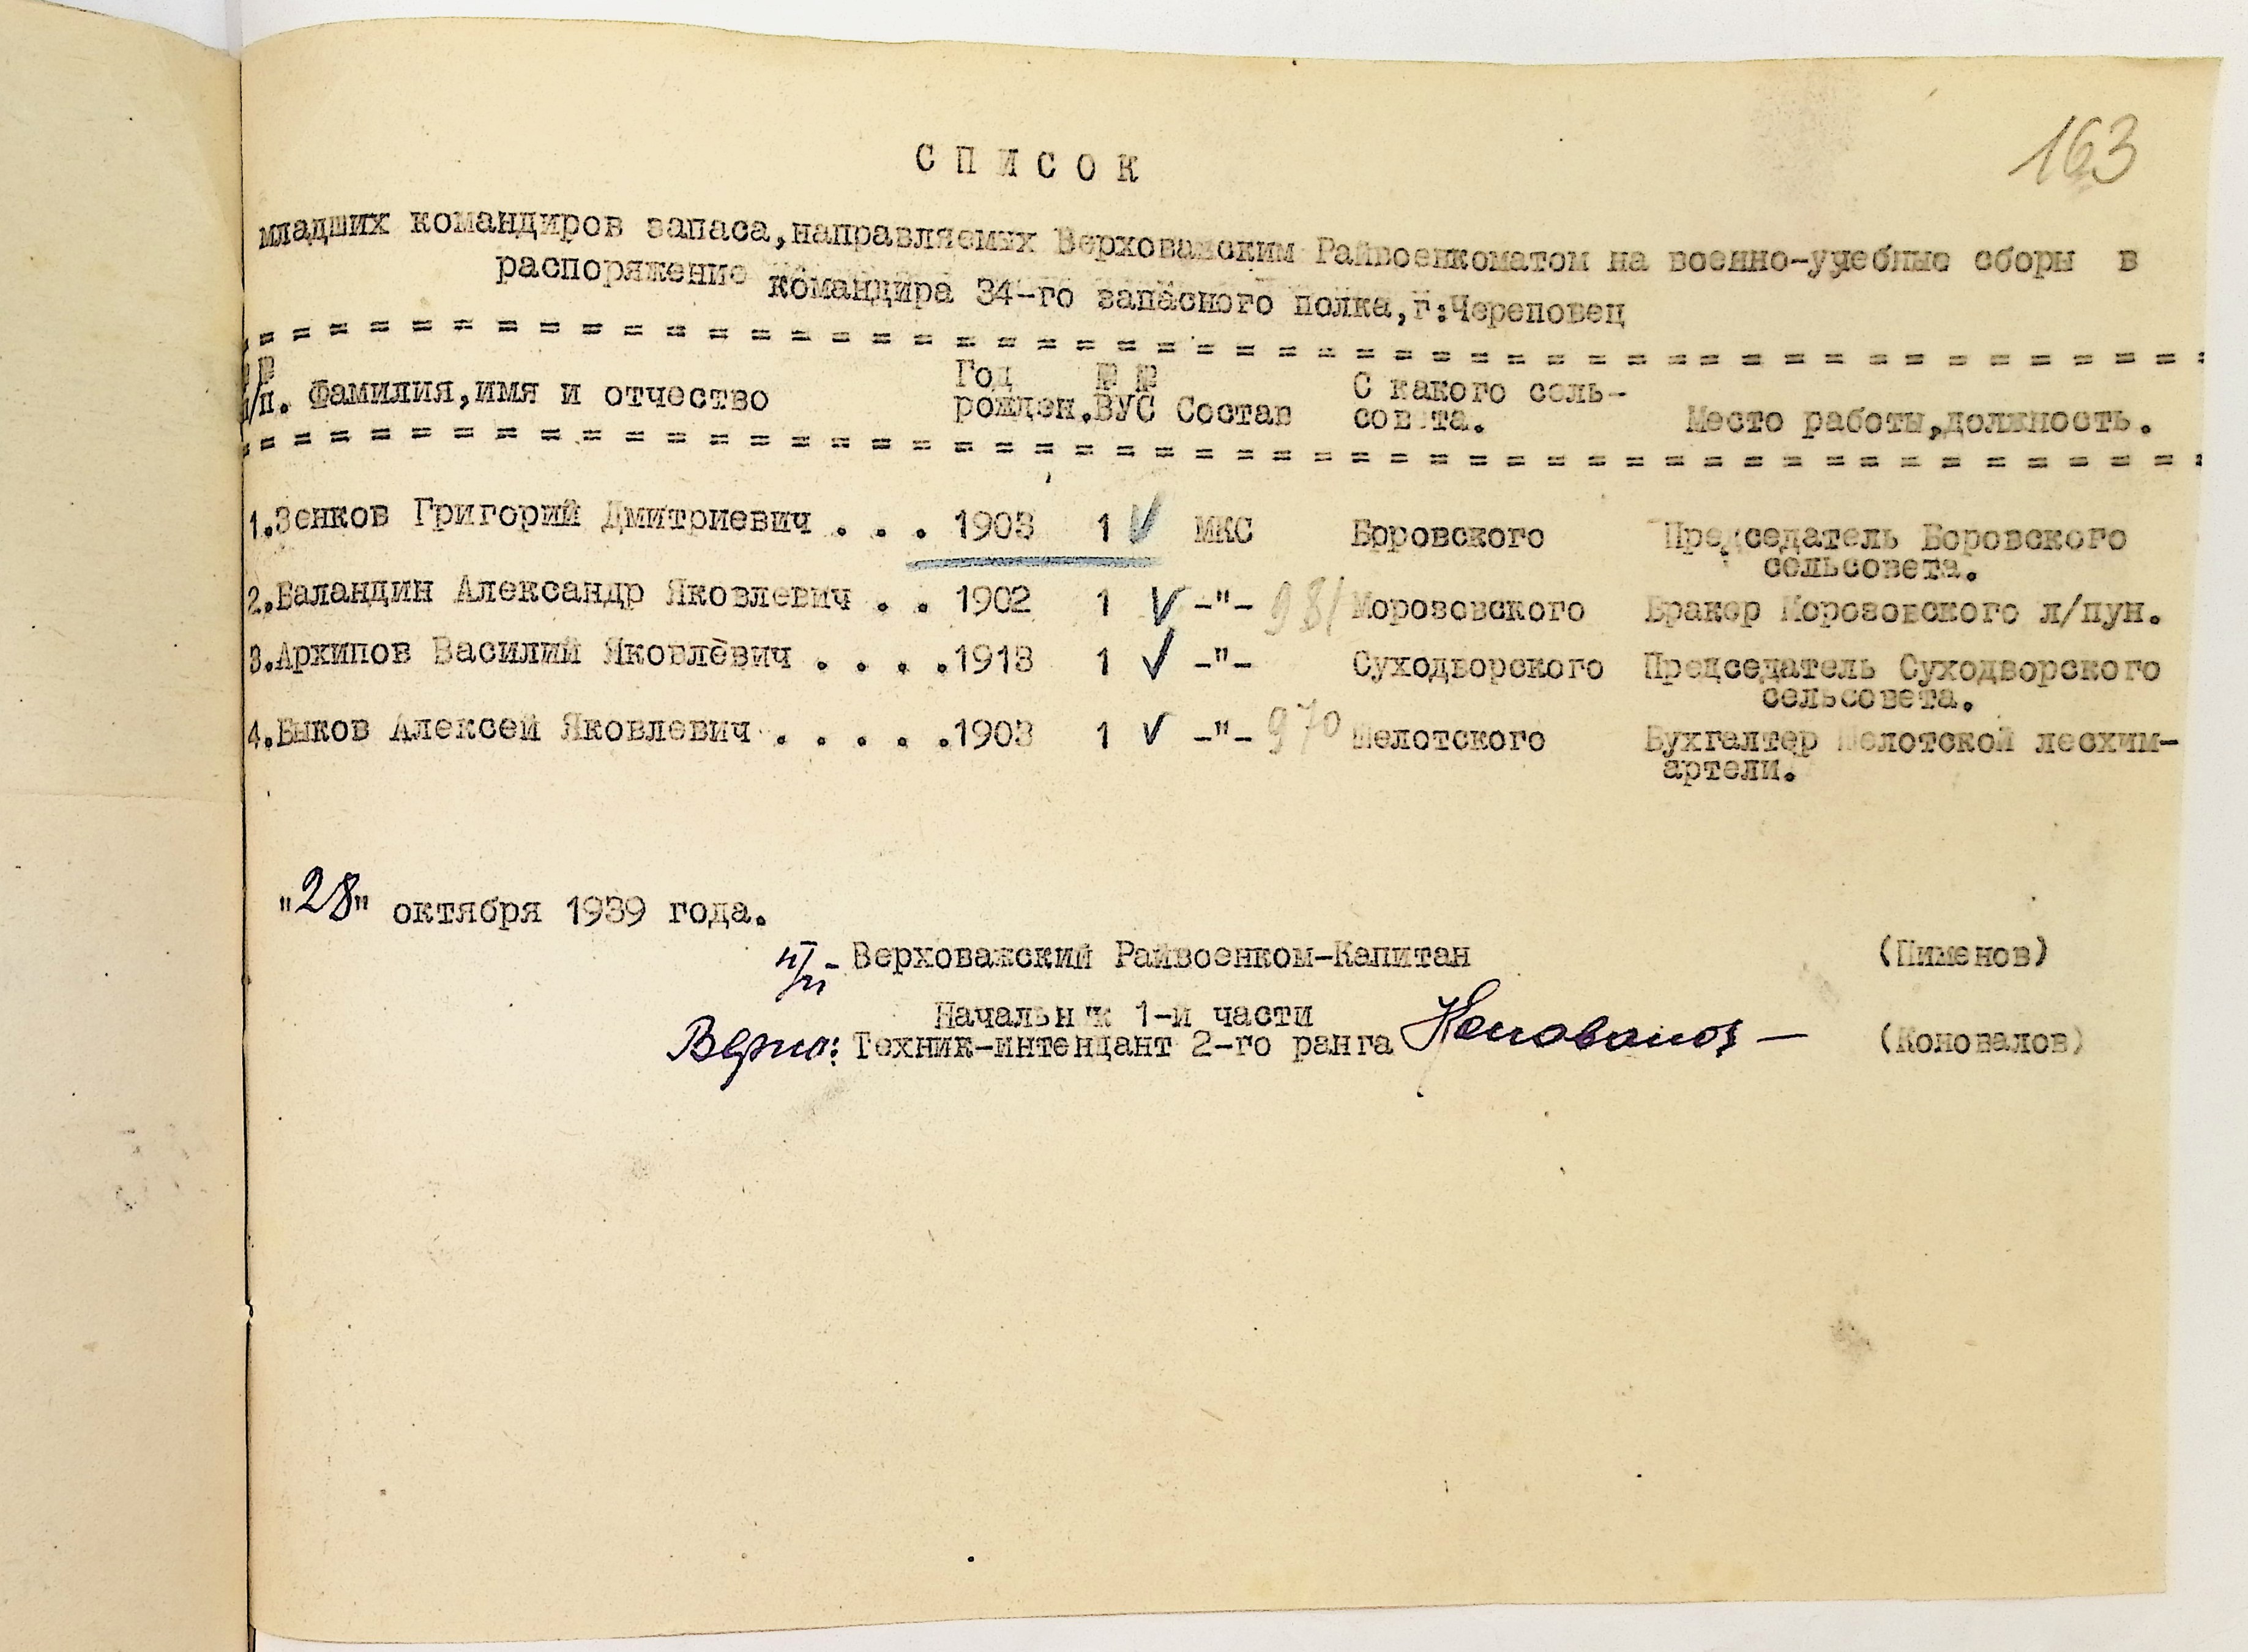 163
С П И С О К
младших командиров запаса,направляемых Верховажским Райвоенкоматом на военно-учебные сборы в
распоряжение командира 34-го запасного полка,г:Череповец
№ №
п/п. Фамилия,имя и отчество Год рожден. № № ВУС Состав С какого сель-совета. Место работы,должность.
1.Зенков Григорий Дмитриевич . . . 1903 1 V МКС Боровского Председатель Боровского
сельсовета.
2.Баландин Александр Яковлевич . . 1902 1 V -"- 981 Морозовского Бракер Морозовского л/пун.
3.Архипов Василий Яковлевич . . . .1913 1 V -"- Суходворского Председатель Суходворского
сельсовета.
4.Быков Алексей Яковлевич . . . . .1903 1 V -"- 970 Шелотского Бухгалтер Шелотской лесхим-
артели.
"28" октября 1939 года.
п/п- Верховажский Райвоенком-Капитан (Пименов)
Начальник 1-й части
Верно: Техник-интендант 2-го ранга Коновалов (Коновалов)